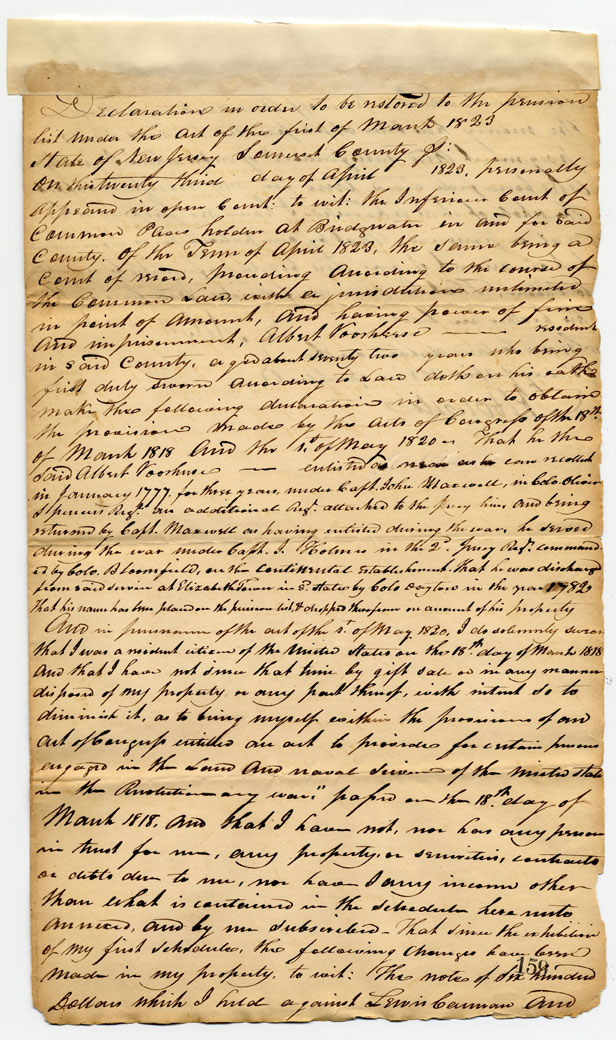 Declaration in order to be restored to the pension
list under the act of the first of March 1823
State of New Jersey Somerset County Ss:
On this twenty third day of April 1823, personally
appeared in open Court: to wit: the Inferior Court of
Common Pleas holden at Bridgwater in and for said
County. Of the Term of April 1823, the same being a
Court of record, proceeding according to the course of
the Common Law, with a jurisdiction unlimited
in point of amount, and having power of fine
and imprisonment, Albert Voorhese — resident
in said County, aged about seventy two years who being
first duly sworn according to Law doth on his oath
make the following declaration in order to obtain
the provision made by the acts of Congress of the 18th
of March 1818 and the 1st of May 1820 - That he the
said Albert Voorhese — enlisted as near as he can recollect
in January 1777, for three years, under Capt. John Maxwell, in Colo. Oliver
Spencer's Regt. an additional Regt. attached to the Jersey line, and being
returned by Capt. Maxwell as having enlisted during the war, he served
during the war under Capt. J. Holmes in the 2d Jersey Regt. command
ed by Colo. Bloomfield, on the continental establishment. that he was discharged
from said service at Elizabeth Town in sd. state by Colo Dayton in the year 1782
That his name has been placed on the pension list, & dropped therefrom on account of his property
And in pursuance of the act of the 1st of May 1820, I do solemnly swear
that I was a resident citizen of the United States on the 18th. day of March 1818
And that I have not since that time by gift sale or in any manner
disposed of my property or any part thereof, with intent so to
diminish it, as to bring myself within the provisions of an
act of Congress entitled an act to provide for certain persons
engaged in the Land and naval service of the United States
in the Revolutionary war," passed on the 18th. day of
March 1818, and that I have not, nor has any person
in trust for me, any property, or securities, contracts
or debts due to me, nor have I any income other
than what is contained in the schedule here unto
annexed, and by me subscribed - That since the exhibition
of my first schedule, the following changes have been
made in my property, to wit: The note of Six Hundred
159
Dollars which I held against Lewis Carman and